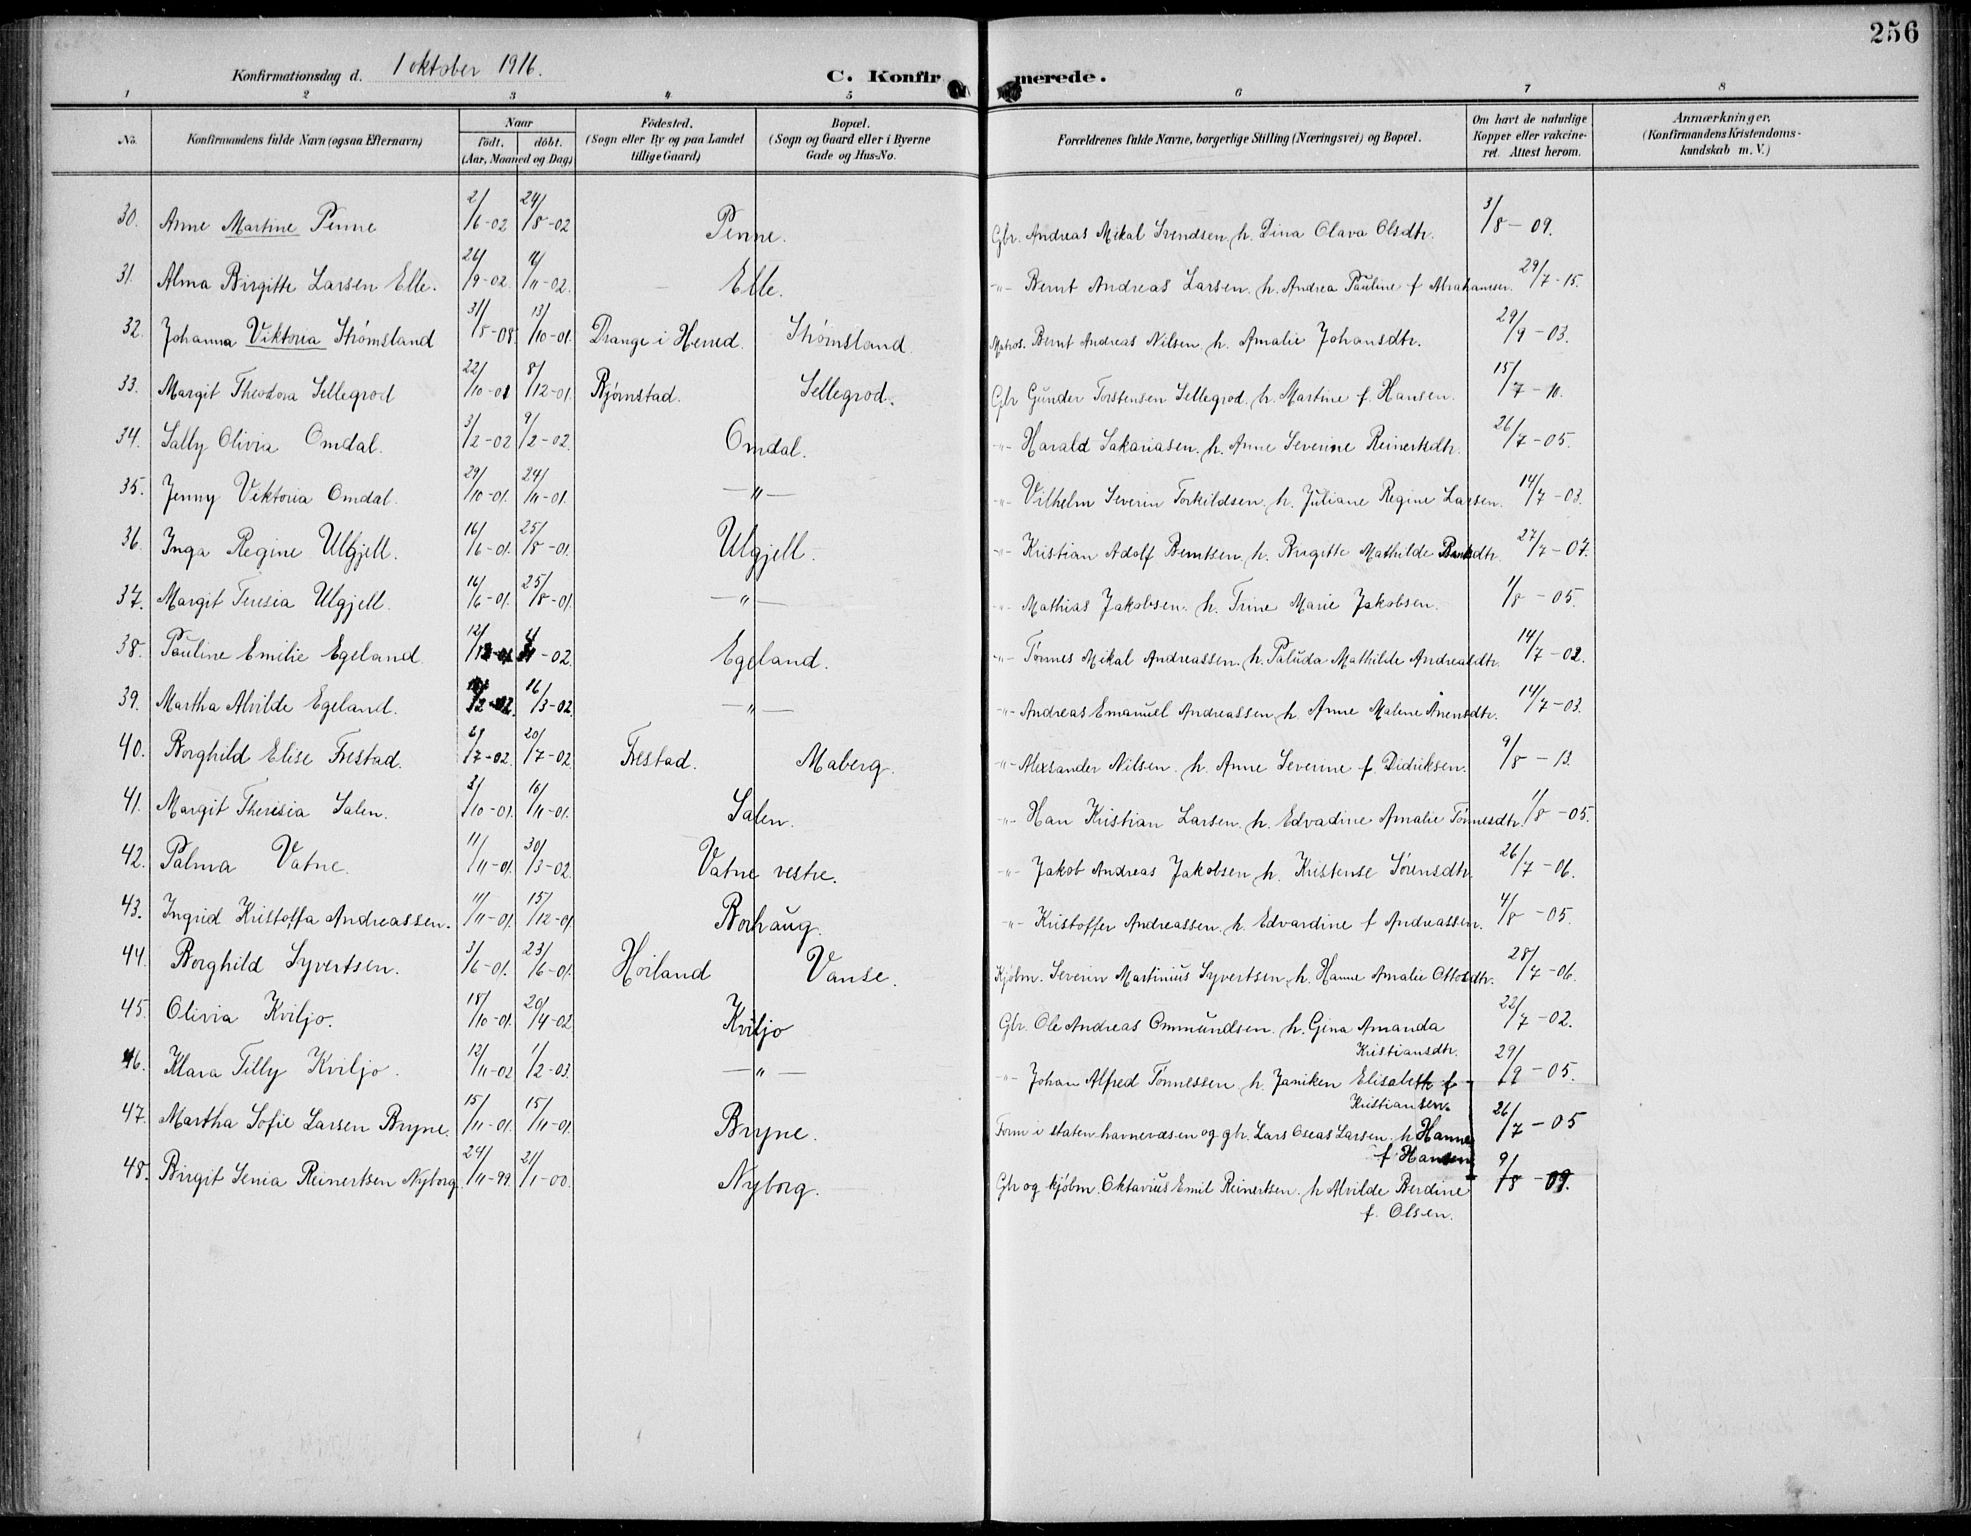 256
Konfirmationsdag d. 1 oktober 1916.
C. Konfirmerede.
1 2 3 4 5 6 7 8
No.
Konfirmandens fulde Navn (ogsaa Efternavn)
Naar
födt. döbt.
(Aar, Maaned og Dag)
Födested.
(Sogn eller By og paa Landet
tillige Gaard)
Bopæl.
(Sogn og Gaard eller i Byerne
Gade og Hus-No.
Forældrenes fulde Navne, borgerlige Stilling (Næringsvei) og Bopæl.
Om havt de naturlige
Kopper eller vakcine-
ret. Attest herom.
Anmærkninger.
(Konfirmandens Kristendoms-
kundskab m. V.)
30. Anne Martine Penne 2/6-02 24/8-02 Penne. Gbr. Andreas Mikal Svendsen, h. Dina Olava Olsdtr. 3/8-09.
31. Alma Birgitte Larsen Elle. 24/9-02. 16/11-02. Elle. -"- Bernt Andreas Larsen. h. Andrea Pauline f Abrahamsen. 29/7-15.
32. Johanna Viktoria Strømsland 31/8-08. 13/10-01. Drange i Herred. Strømsland. Matros. Bernt Andreas Nilsen. h. Amalie Johansdtr. 29/9-03.
33. Margit Theodora Sellegrod 22/10-01 8/12-01. Bjørnstad. Sellegrod. Gbr Gunder Torstensen Sellegrod. h. Martine f. Hansen. 15/7-10.
34. Sally Olivia Omdal. 3/2-02 9/2-02. Omdal. -"- Harald Sakariasen. h. Anne Severine Reinertsdtr. 26/7-05.
35. Jenny Viktoria Omdal. 29/10-01. 24/11-01. -"- -"- Vilhelm Severin Torkildsen, h. Juliane Regine Larsen. 14/7-03.
36. Inga Regine Ulgjell. 16/6-01. 25/8-01. Ulgjell. -"- Kristian Adolf Berntsen, h. Birgitte Mathilde Berntsdtr. 27/7-07.
37. Margit Teresia Ulgjell. 16/6-01. 25/8-01. -"- -"- Mathias Jakobsen. h. Trine Marie Jakobsen. 1/8-05.
38. Pauline Emilie Egeland. 12/12-01 -02. Egeland. -"- Tønnes Mikal Andreassen. h. Paluda Mathilde Andreasdtr. 14/7-02.
39. Martha Alvilde Egeland. /2-02. 16/3-02. -"- -"- Andreas Emanuel Andreassen, h. Anne Malene Arentsdtr. 14/7-03.
40. Borghild Elise Frestad. 6/7-02. 20/7-02. Frestad. Maberg. -"- Alexsander Nilsen. h. Anne Severine f. Didriksen. 9/8-13.
41. Margit Theresia Salen. 3/10-01. 16/11-01. Salen. -"- Han Kristian Larsen, h. Edvadine Amalie Tønnesdtr. 1/8-05.
42. Palma Vatne. 11/11-01. 30/3-02. Vatne vestre. -"- Jakob Andreas Jakobsen, h. Kristense Sørensdtr. 26/7-06.
43. Ingrid Kristoffa Andreassen. 11/11-01. 15/12-01. Borhaug. -"- Kristoffer Andreassen, h. Edvardine f Andreassen. 4/8-05.
44. Borghild Syvertsen. 3/6-01. 23/6-01. Høiland Vanse. Kjøbm. Severin Martinius Syvertsen, h. Hanne Amalie Ottosdtr. 28/7-06.
45. Olivia Kviljo. 18/10-01. 20/4-02. Kviljo Gbr. Ole Andreas Ommundsen. h. Gina Amanda 22/7-02.
Kristiansdtr.
46. Klara Tilly Kviljo. 12/11-02 1/2-03. -"- -"- Johan Alfred Tønnessen, h. Janiken Elisabeth f 29/9-05.
Kristiansen.
47. Martha Sofie Larsen Bryne. 15/11-01. 15/11-01. Bryne. Form i staten havnevæsen og gbr. Lars Oseas Larsen. h Hanne 26/7-05
f Hansen
48. Birgit Senia Reinertsen Nyborg. 24/11-99. 21/1-00. Nyborg. Gbr og kjøbm. Oktavius Emil Reinertsen. h Alvilde Berdine 9/8-09.
f. Olsen.